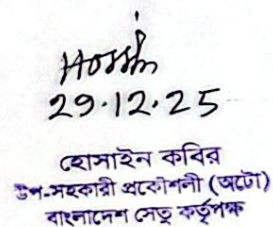 Hossin
29.12.25
হোসাইন কবির
উপ-সহকারী প্রকৌশলী (অটো)
বাংলাদেশ সেতু কর্তৃপক্ষ